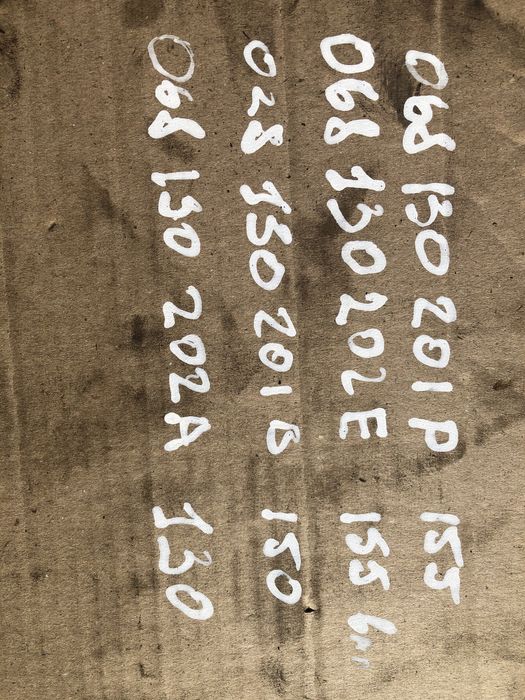 068 130 201P 155
068 130 202E 155 bar
028 130 201B 150
068 130 202A 130